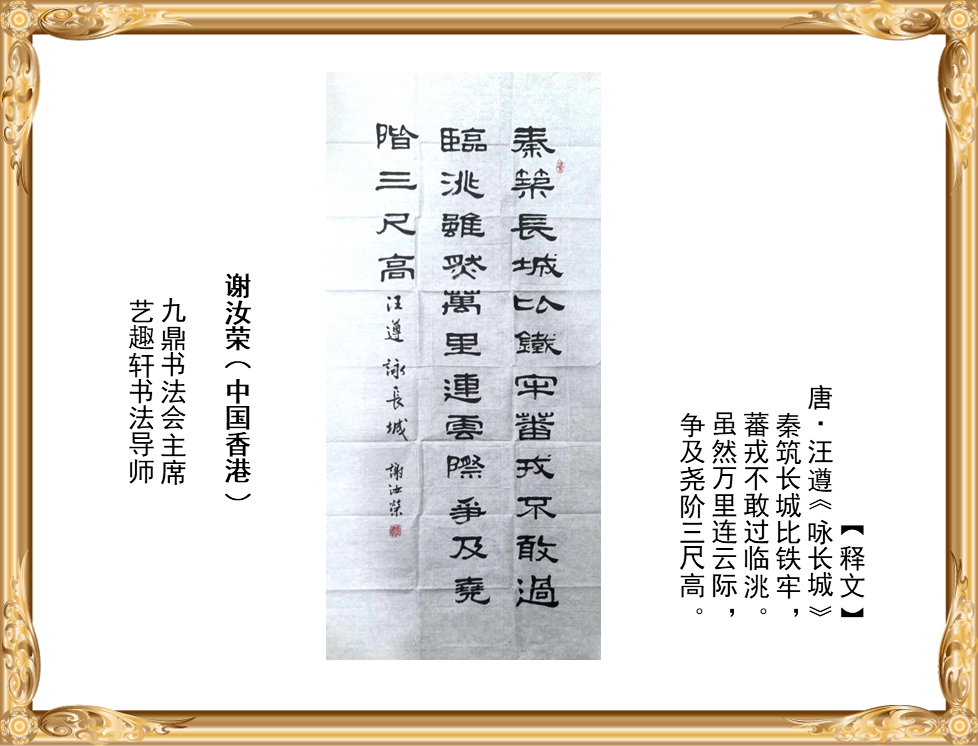 【释文】
唐·汪遵《咏长城》
秦筑长城比铁牢，
蕃戎不敢过临洮。
虽然万里连云际，
争及尧阶三尺高。
秦築長城比鐵牢蕃戎不敢過
臨洮雖然萬里連雲際爭及堯
階三尺高汪遵詠長城 謝汝榮
谢汝荣（中国香港）
九鼎书法会主席
艺趣轩书法导师